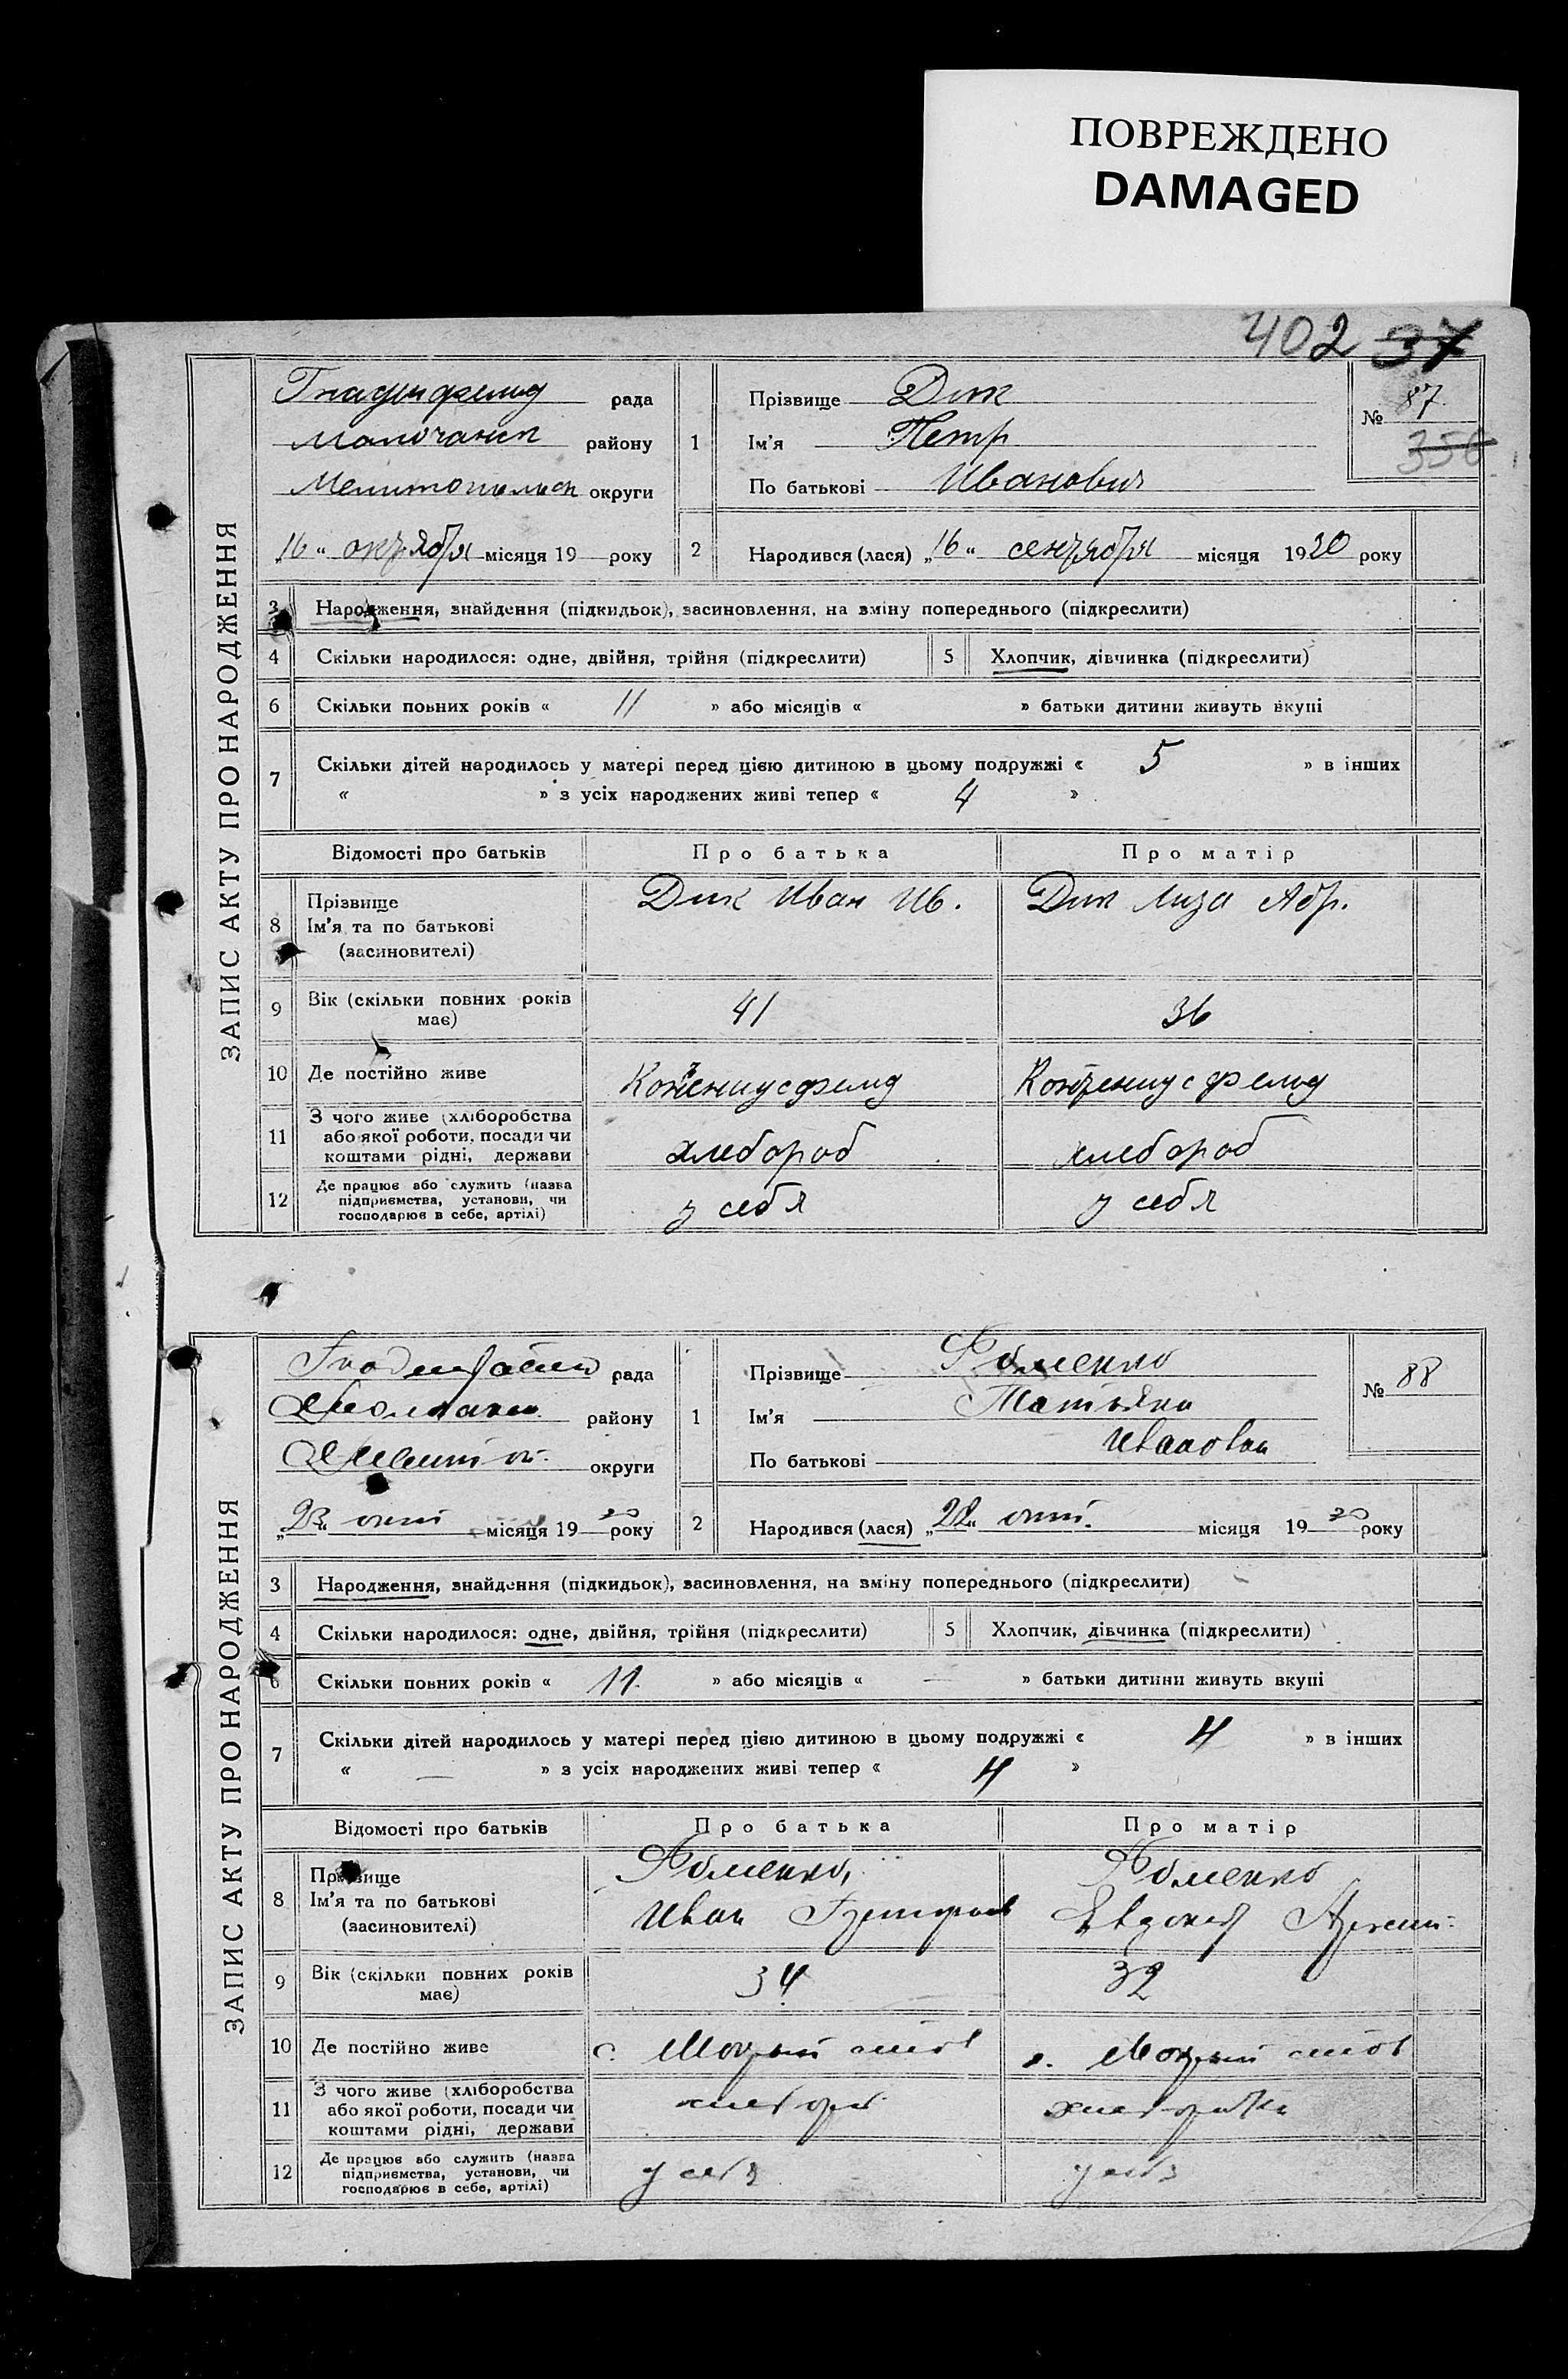 ПОВРЕЖДЕНО
DAMAGED
402 37
ЗАПИС АКТУ ПРО НАРОДЖЕННЯ
Гнаденфельд рада
Молочанск району
Мелитопольск округи
„16“ октября місяця 19 року
1 Прізвище Дик
Ім'я Петр
По батькові Иванович
№ 87
356
2 Народився (лася) „16“ сентября місяця 1920 року
3 Народження, знайдення (підкидьок), засиновлення, на зміну попереднього (підкреслити)
4 Скільки народилося: одне, двійня, трійня (підкреслити) 5 Хлопчик, дівчинка (підкреслити)
6 Скільки повних років « 11 » або місяців « » батьки дитини живуть вкупі
7 Скільки дітей народилось у матері перед цією дитиною в цьому подружжі « 5 » в інших
« » з усіх народжених живі тепер « 4 »
Відомості про батьків Про батька Про матір
8 Прізвище
Ім'я та по батькові
(засиновителі)
Дик Иван Ив. Дик Лиза Абр.
9 Вік (скільки повних років
має)
41 36
10 Де постійно живе
Контениусфельд Контениусфельд
11 З чого живе (хліборобства
або якої роботи, посади чи
коштами рідні, держави
хлебороб хлебороб
12 Де працює або служить (назва
підприємства, установи, чи
господарює в себе, артілі)
у себя у себя
ЗАПИС АКТУ ПРО НАРОДЖЕННЯ
рада
району
округи
„23“ окт місяця 1920 року
1 Прізвище Фоменко
Ім'я Татьяна
По батькові Ивановна
№ 88
2 Народився (лася) „22“ окт. місяця 1920 року
3 Народження, знайдення (підкидьок), засиновлення, на зміну попереднього (підкреслити)
4 Скільки народилося: одне, двійня, трійня (підкреслити) 5 Хлопчик, дівчинка (підкреслити)
6 Скільки повних років « 11 » або місяців « — » батьки дитини живуть вкупі
7 Скільки дітей народилось у матері перед цією дитиною в цьому подружжі « 4 » в інших
« — » з усіх народжених живі тепер « 4 »
Відомості про батьків Про батька Про матір
8 Прізвище
Ім'я та по батькові
(засиновителі)
Фоменко Фоменко
Иван
9 Вік (скільки повних років
має)
34 32
10 Де постійно живе
с.
11 З чого живе (хліборобства
або якої роботи, посади чи
коштами рідні, держави
хлебороб
12 Де працює або служить (назва
підприємства, установи, чи
господарює в себе, артілі)
у себя у себя